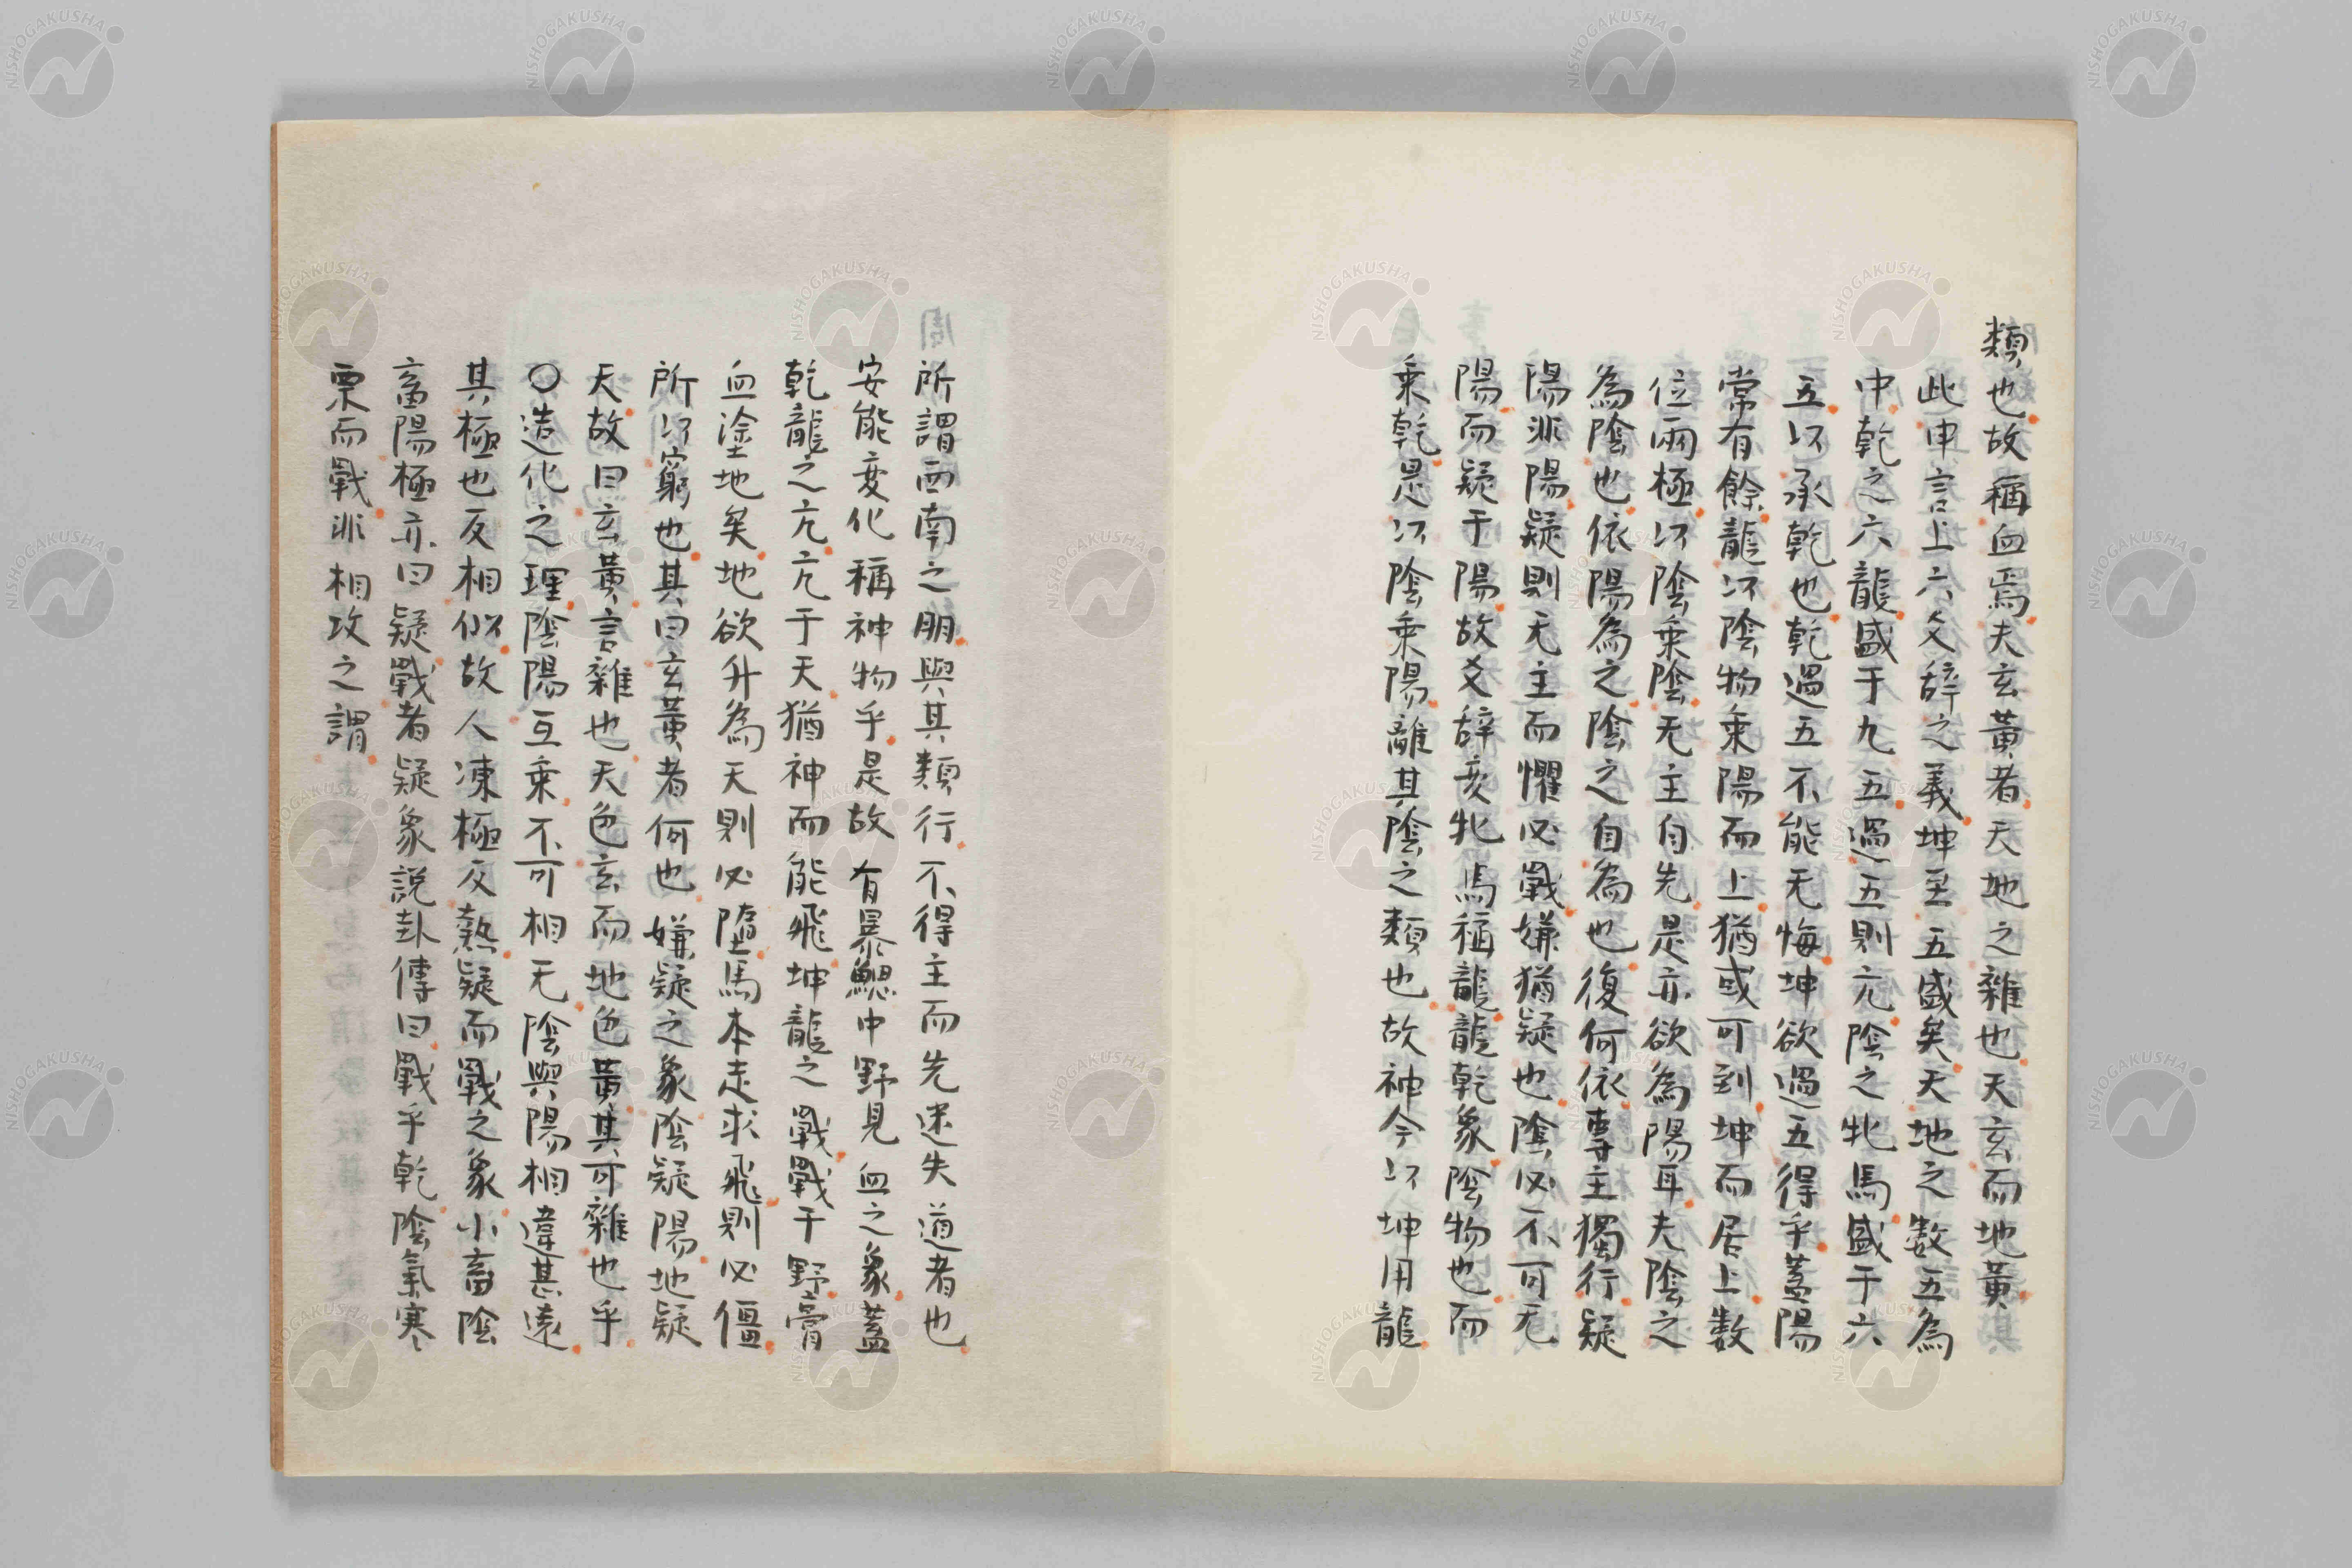 類也故稱血焉夫玄黃者天地之雜也天玄而地黃
此申言上六爻辞之義坤至五盛矣天地之数五為
中乾之六龍盛于九五過五則亢陰之牝馬盛于六
五以承乾也乾過五不能无悔坤欲過五得乎蓋陽
常有餘龍以陰物乗陽而上猶或可到坤而居上数
位兩極以陰乗陰无主自先是亦欲為陽耳夫陰之
為陰也依陽為之陰之自為也復何依專主獨行疑
陽非陽疑則无主而懼必戰嫌猶疑也陰必不可无
陽而疑于陽故爻辞変牝馬稱龍龍乾象陰物也而
乗乾是以陰乗陽離其陰之類也故神今以坤用龍
所謂西南之朋與其類行不得主而先迷失道者也
安能変化稱神物乎是故有暴鰓中野見血之象蓋
乾龍之亢亢于天猶神而能飛坤龍之戰戰于野膏
血塗地矣地欲升為天則必墮馬本走求飛則必僵
所以窮也其曰玄黃者何也嫌疑之象陰疑陽地疑
天故曰玄黃言雜也天色玄而地色黃其可雜也乎
○造化之理陰陽互乗不可相无陰與陽相違甚遠
其極也反相似故人凍極反熱疑而戰之象小畜陰
畜陽極亦曰疑戰者疑象說卦傳曰戰乎乾陰氣寒
栗而戰非相攻之謂
NISHOGAKUSHA